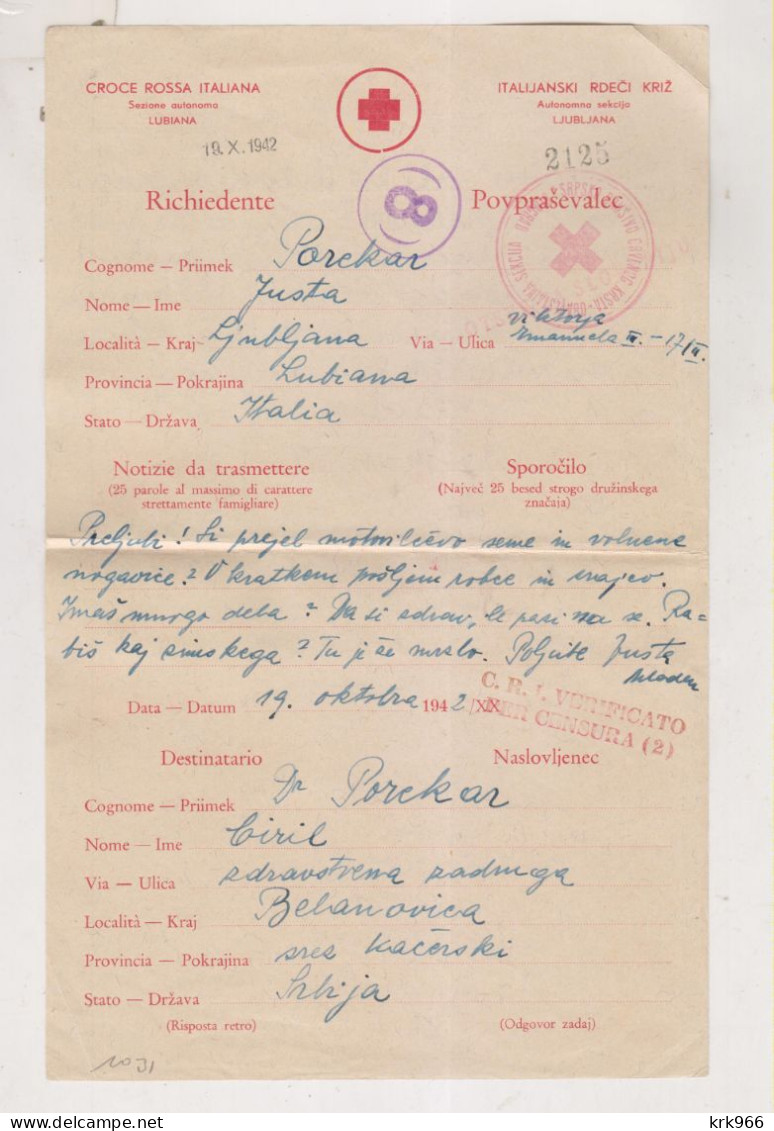 CROCE ROSSA ITALIANA
Sezione autonoma
LUBIANA
ITALIJANSKI RDEČI KRIŽ
Avtonomna sekcija
LJUBLJANA
19. X. 1942
2125
8
Richiedente
Povpraševalec
Cognome — Priimek Porekar
Nome — Ime Justa
Località — Kraj Ljubljana Via — Ulica Viktorja
Emanuela III. — 17/II.
Provincia — Pokrajina Lubiana
Stato — Država Italia
Notizie da trasmettere
(25 parole al massimo di carattere
strettamente famigliare)
Sporočilo
(Največ 25 besed strogo družinskega
značaja)
Preljubi! Si prejel motovilčevo seme in volnene
nogavice? V kratkem pošljem robce in
Imaš mnogo dela? Da si zdrav, le pazi na se. Ra-
biš kaj zimskega? Tu je še mrzlo. Poljube Justa
Mladen
Data — Datum 19. oktobra 1942/XX
C. R. I. VERIFICATO
PER CENSURA (2)
Destinatario
Naslovljenec
Cognome — Priimek Dr Porekar
Nome — Ime Ciril
Via — Ulica zdravstvena zadruga
Località — Kraj Belanovica
Provincia — Pokrajina srez kačerski
Stato — Država Srbija
(Risposta retro)
(Odgovor zadaj)
krk966